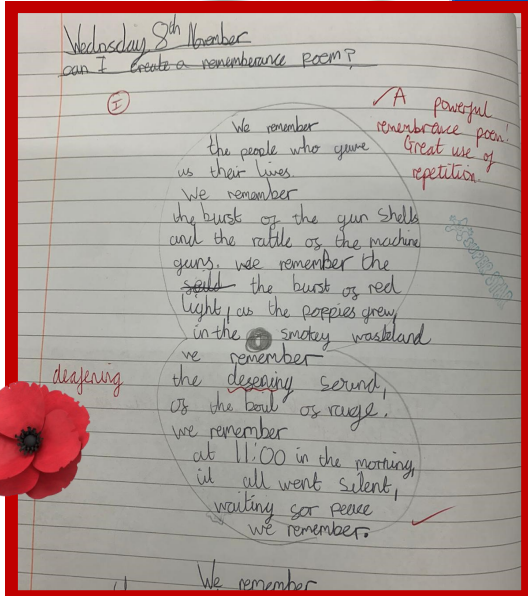 Wednesday 8th November
can I create a rememberance poem?
I
✓ A powerful
remembrance poem!
Great use of
repetition.
We remember
the people who gave
us their lives.
We remember
the burst of the gun shells
and the rattle of the machine
guns. we remember the
the burst of red
light, as the poppies grew,
in the smokey wasteland
we remember
deafening
the defening sound,
of the boul of rage.
we remember
at 11:00 in the morning,
it all went silent,
waiting for peace
we remember.
We remember